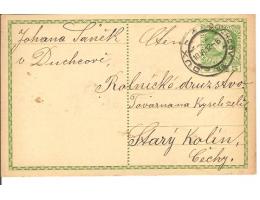 Johana Saněk
v Duchcově
Ctěné
Rolnické družstvo
Továrna na Kyselé zelí
Starý Kolín,
Čechy.
DUX